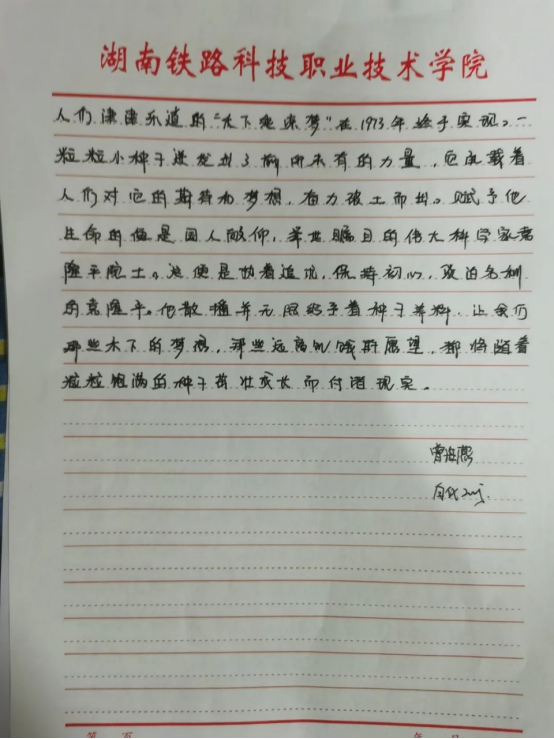 湖南铁路科技职业技术学院
人们津津乐道的“禾下乘凉梦”在1973年终于实现。一
粒粒小种子迸发出了前所未有的力量，它承载着
人们对它的期待和梦想，奋力破土而出。赋予他
生命的便是国人敬仰，举世瞩目的伟大科学家袁
隆平院士。这便是执着追求，保持初心，淡泊名利
的袁隆平。他散播并无限给予着种子养料，让我们
那些禾下的梦想，那些远离饥饿的愿望，都将随着
粒粒饱满的种子茁壮成长而付诸现实。
第 页
年 月